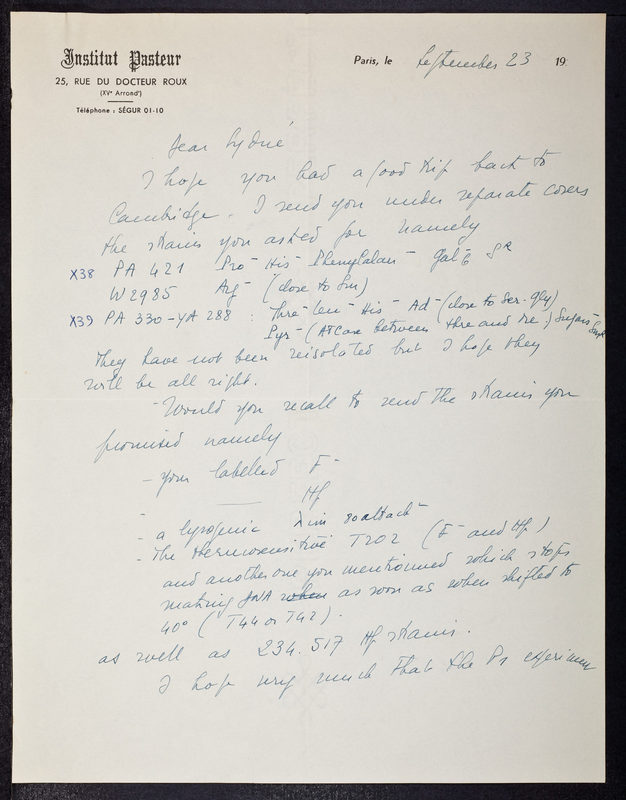 Institut Pasteur
25, RUE DU DOCTEUR ROUX
(XVe Arrondt)
Téléphone : SÉGUR 01-10
Paris, le September 23 19
Dear Sydné
I hope you had a good trip back to
Cambridge. I send you under separate covers
the strains you asked for namely
X38 PA 421 Pro- His- Phenylalan- Gal-6 SR
W2985 Arg- (close to Sm)
X39 PA 330-YA 288 : Thre- Leu- His- Ad- (close to Ser-Gly)
Pyr- (ATCase between thre and ) Sugars- SmR
They have not been reisolated but I hope they
will be all right.
- Would you recall to send the strains you
promised namely
- your labelled F-
- —— Hfr
- a lysogenic λ in 80 attach-
- The thermosensitive T202 (F- and Hfr)
and another one you mentionned which stops
making DNA when as soon as when shifted to
40° (T44 or T42).
as well as 234.517 Hfr strains.
I hope very much that the experiment